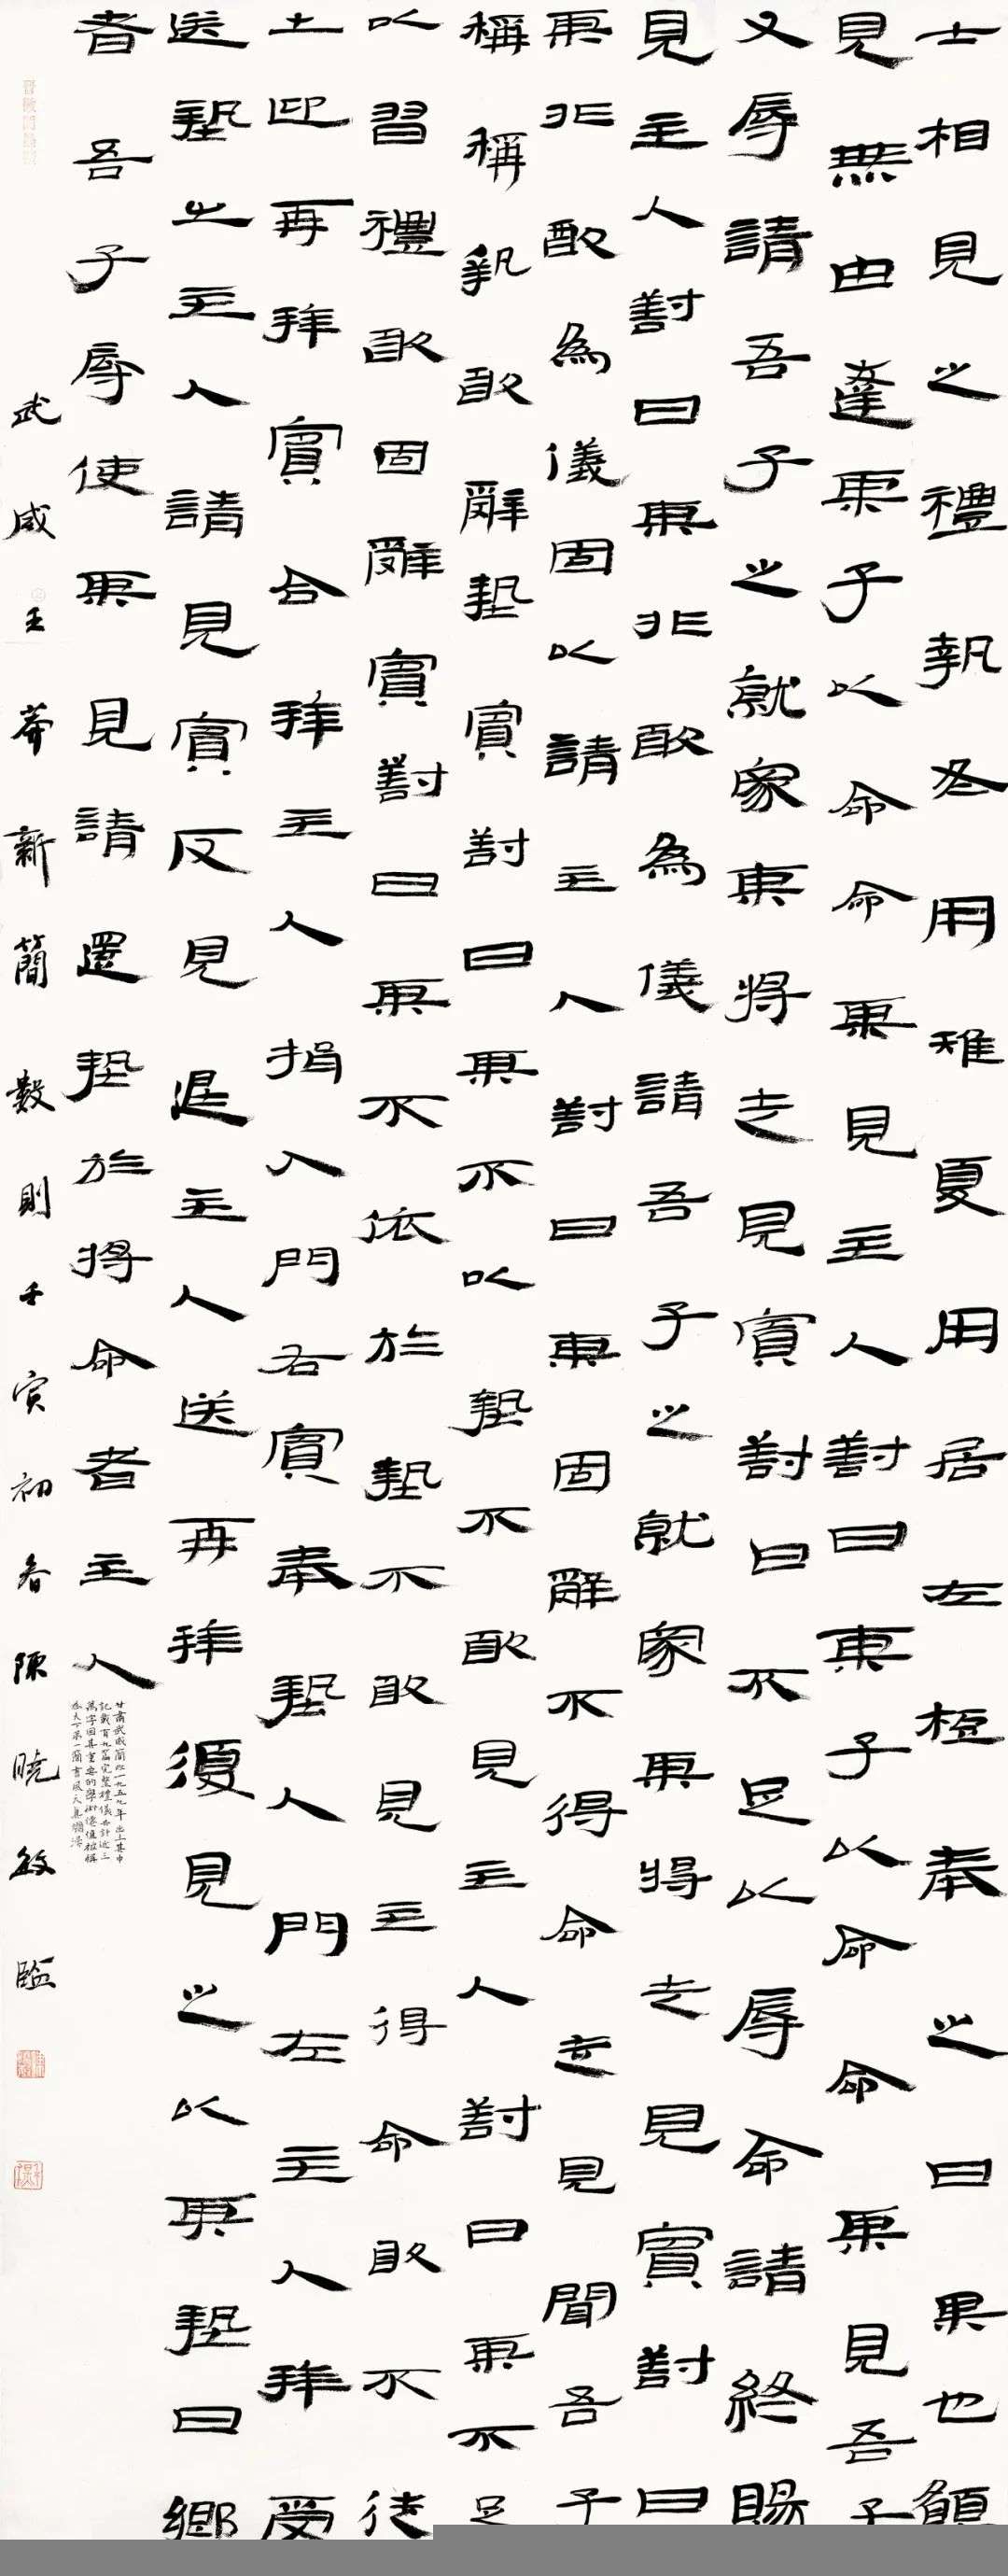 士相見之禮執冬用雉夏用居左梪奉之曰某也願
見無由達某子以命命某見主人對曰某子以命命某見吾子
又辱請吾子之就家某將走見賓對曰不足以辱命請終賜
見主人對曰某非敢為儀請吾子之就家某將走見賓對曰
某非敢為儀固以請主人對曰某固辭不得命走見聞吾子
稱稱執敢辭摯賓對曰某不以摯不敢見主人對曰某不足
以習禮敢固辭賓對曰某不依於摯不敢見主得命敢不徒
土迎再拜賓合拜主人揖入門右賓奉摯人門左主人拜受
送摯之主人請見賓反見退主人送再拜復見之以其摯曰鄉
者吾子辱使某見請還摯於將命者主人
甘肅武威簡於一九五九年出土其中
武威王莽新簡數則壬寅初春陳曉敏臨